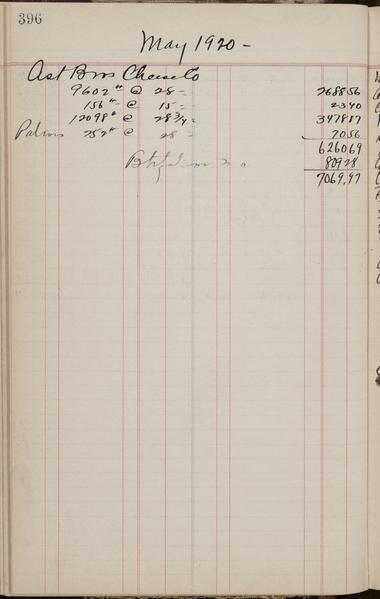 396
May 1920 -
Ast Bros Cheese Co
9602 # @ 28 = 268856
156 # @ 15 = 2340
12098 # @ 28 3/4 = 347817
252 # @ 28 = 7056
626069
80928
7069.97